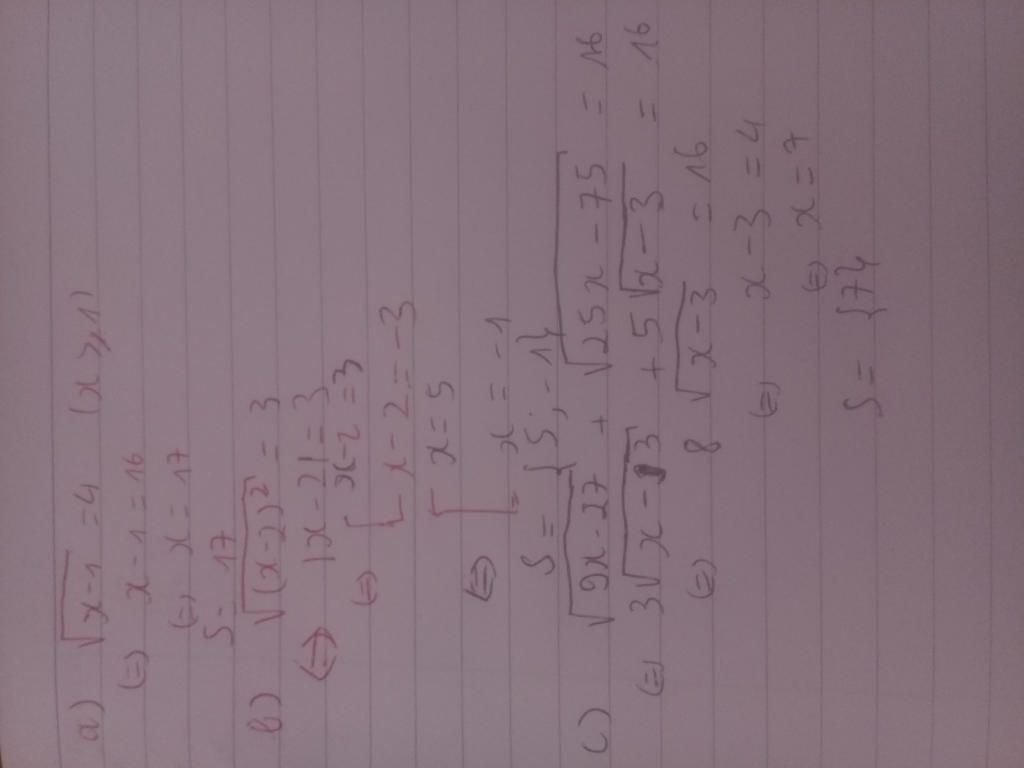 a) √(x-1) = 4 (x ≥ 1)
(=) x - 1 = 16
(=) x = 17
S = 17
b) √((x-2)²) = 3
<=> |x - 2| = 3
(=) [ x - 2 = 3
[ x - 2 = -3
<=> [ x = 5
[ x = -1
S = {5; -1}
c) √(9x - 27) + √(25x - 75) = 16
(=) 3√(x - 3) + 5√(x - 3) = 16
(=) 8√(x - 3) = 16
(=) x - 3 = 4
(=) x = 7
S = {7}